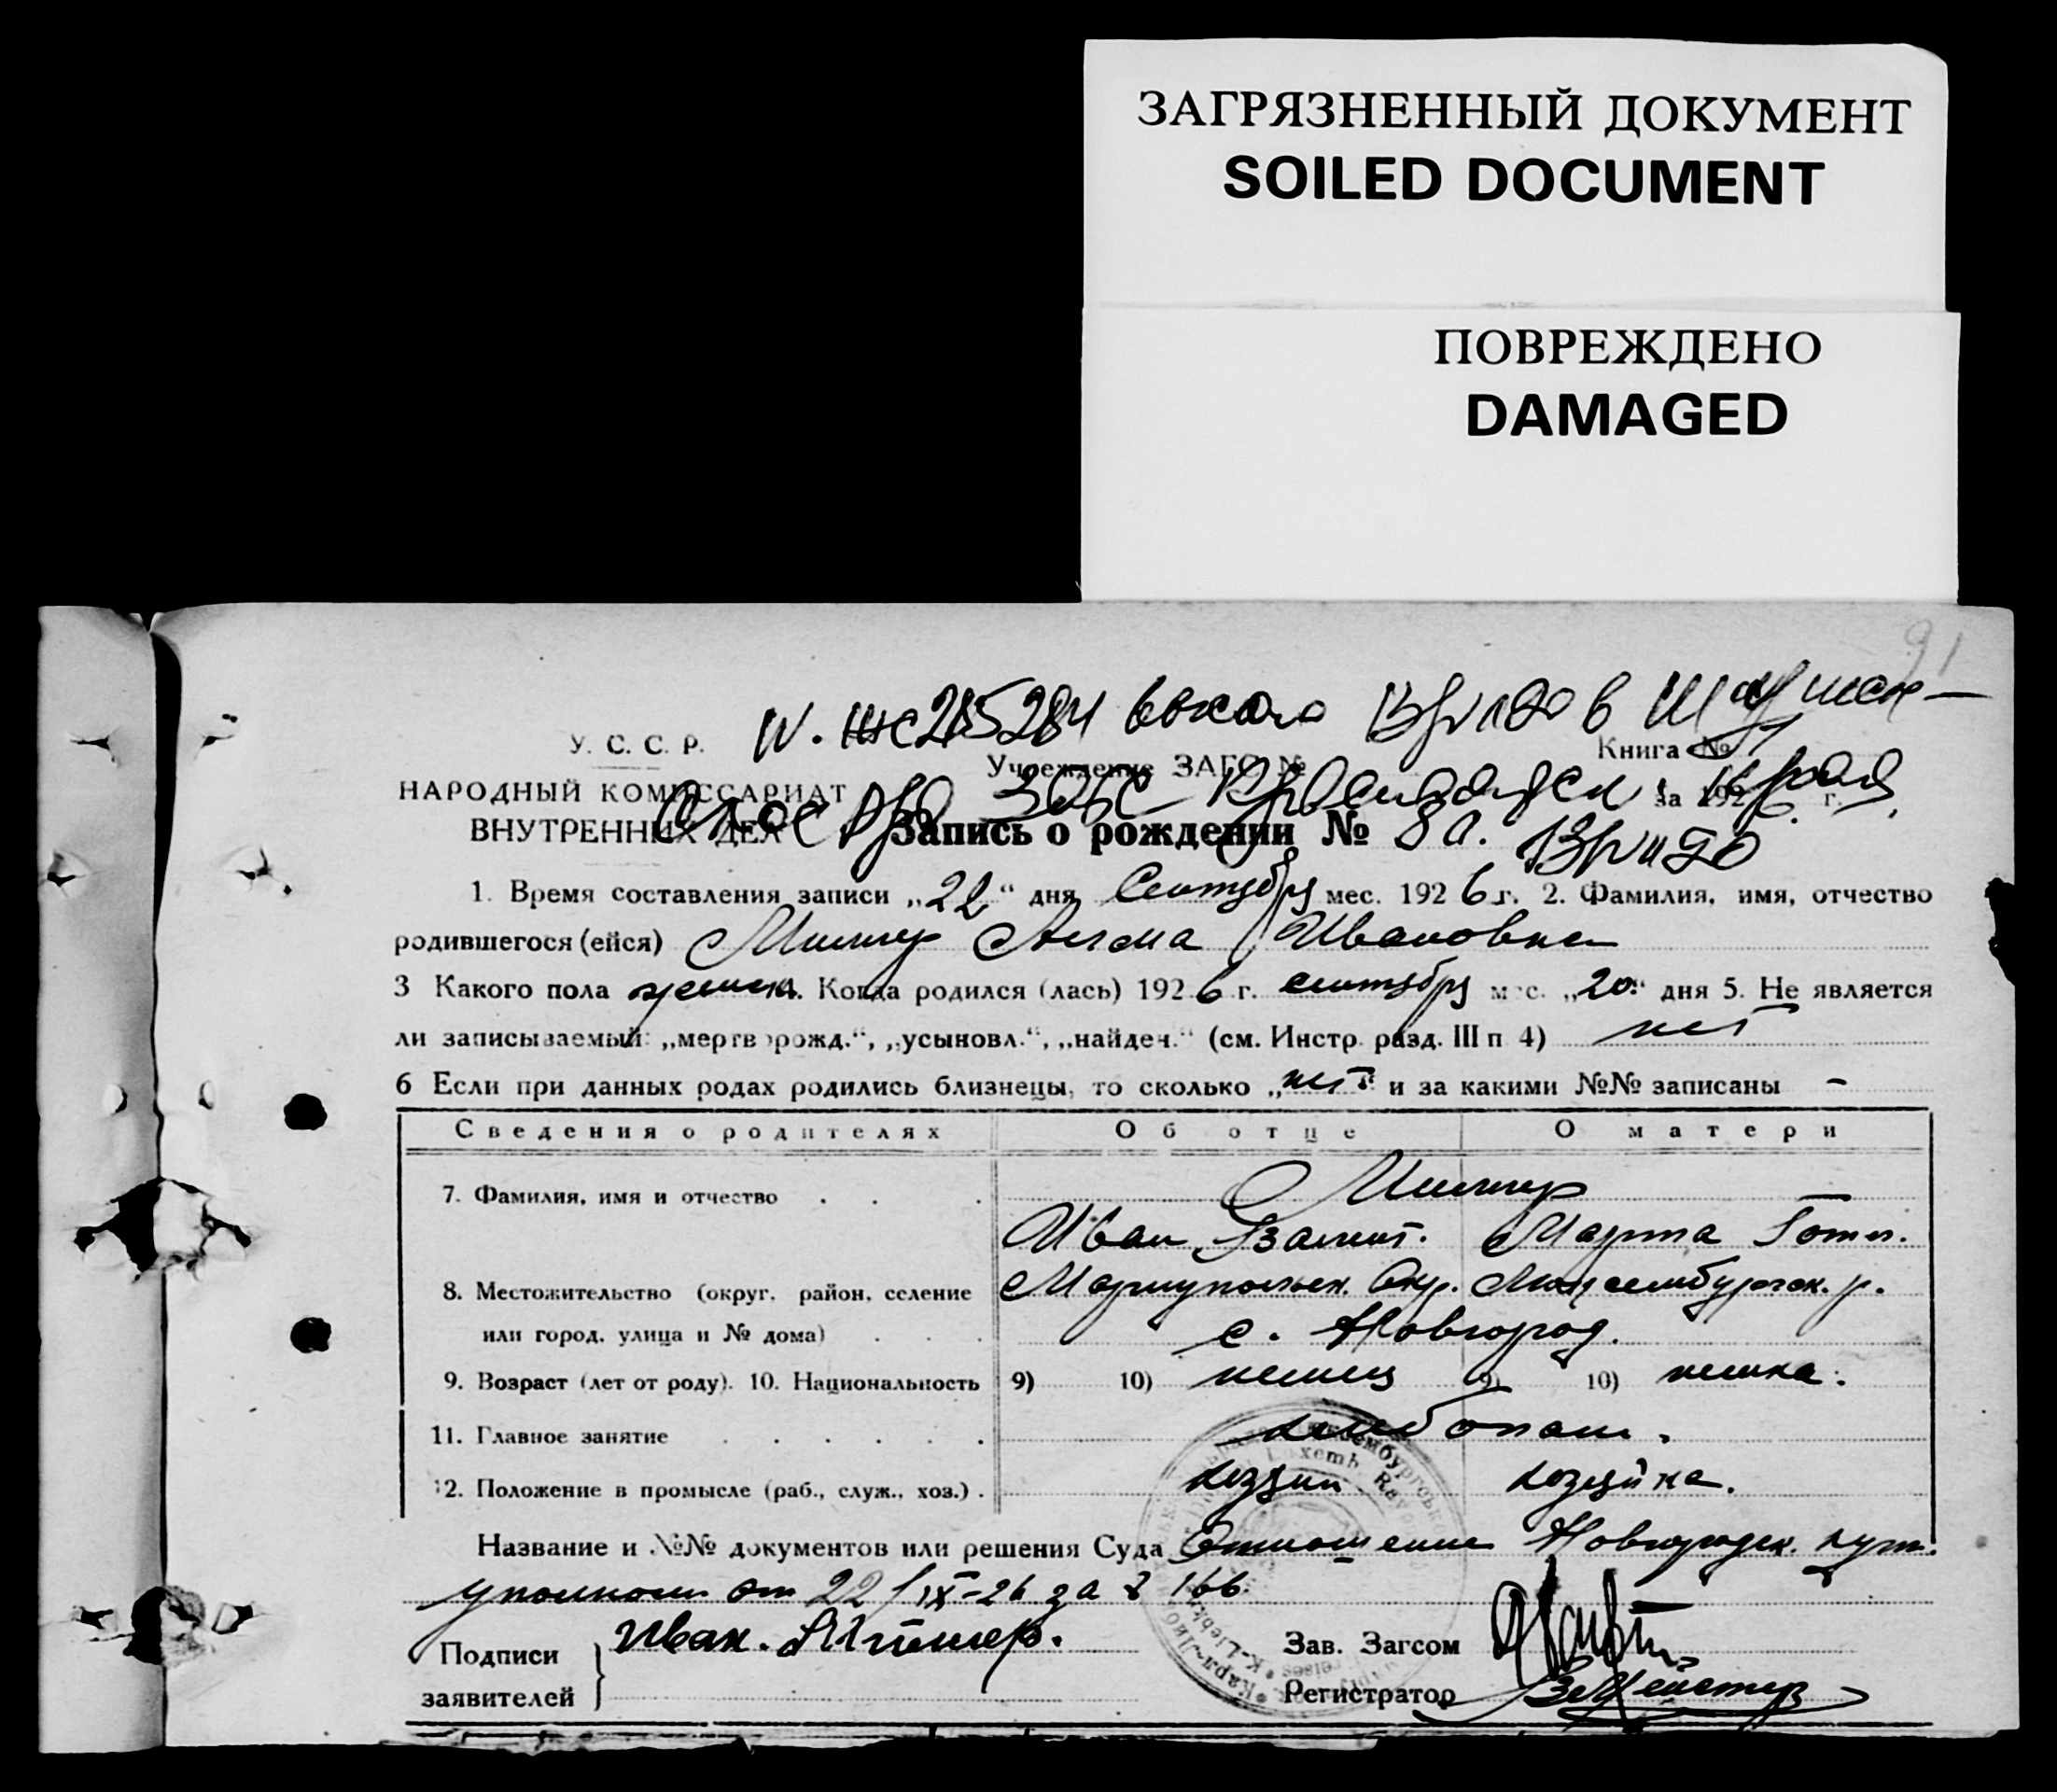 ЗАГРЯЗНЕННЫЙ ДОКУМЕНТ
SOILED DOCUMENT
ПОВРЕЖДЕНО
DAMAGED
91
У. С. С. Р.
Учреждение ЗАГС №
Книга №
НАРОДНЫЙ КОМИССАРИАТ
за 1926 г.
ВНУТРЕННИХ ДЕЛ
Запись о рождении № 8а.
1. Время составления записи „22“ дня Сентября мес. 1926 г. 2. Фамилия, имя, отчество
родившегося (ейся) Миллер Ивановна
3 Какого пола женск. Когда родился (лась) 1926 г. сентября мес. „20“ дня 5. Не является
ли записываемый: „мертворожд.“, „усыновл.“, „найден.“ (см. Инстр. разд. III п 4) нет
6 Если при данных родах родились близнецы, то сколько „нет“ и за какими №№ записаны -
Сведения о родителях Об отце О матери
7. Фамилия, имя и отчество Миллер
Иван Марта Готл.
8. Местожительство (округ, район, селение Мариупольск. Окр. Люксембургск. р.
или город, улица и № дома) с. Новгород.
9. Возраст (лет от роду). 10. Национальность 9) 10) немец 9) 10) немка.
11. Главное занятие хлебопаш.
12. Положение в промысле (раб., служ., хоз.) хозяин хозяйка.
Название и №№ документов или решения Суда Отношение Новгородск.
от 22/IX-26 за № 166.
Подписи Иван. Миллер. Зав. Загсом
заявителей Регистратор